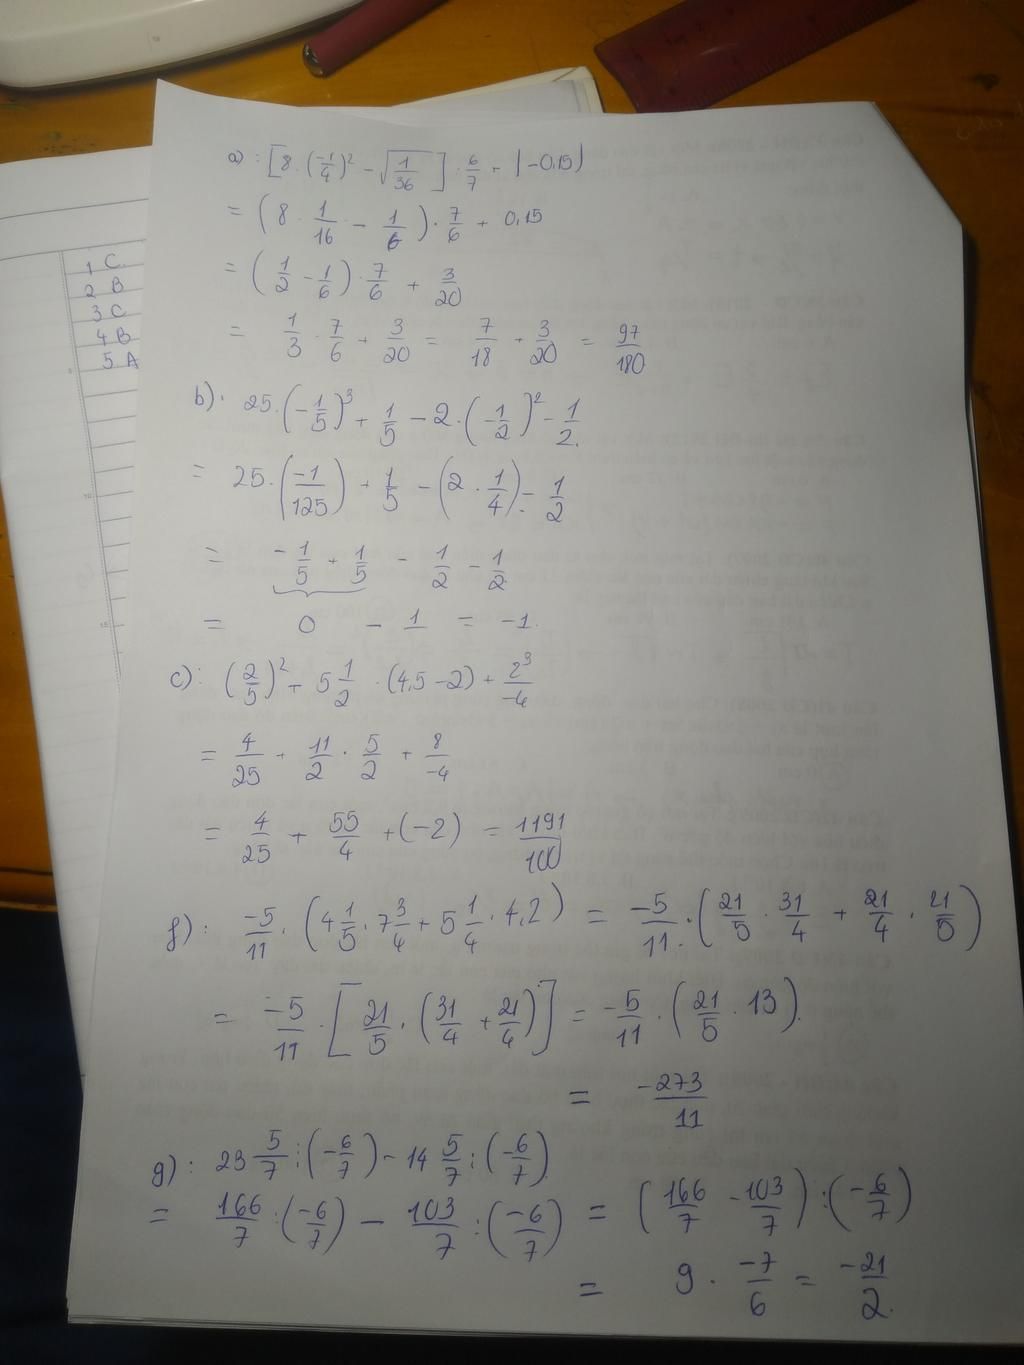 1 C
2 B
3 C
4 B
5 A
a) : [8.(-1/4)² - √(1/36)] . 6/7 + |-0,15|
= (8 . 1/16 - 1/6) . 7/6 + 0,15
= (1/2 - 1/6) . 7/6 + 3/20
= 1/3 . 7/6 + 3/20 = 7/18 + 3/20 = 97/180
b). 25.(-1/5)³ + 1/5 - 2.(-1/2)² - 1/2.
= 25.(-1/125) + 1/5 - (2 . 1/4) - 1/2
= -1/5 + 1/5 - 1/2 - 1/2
= 0 - 1 = -1.
c): (2/5)² + 5 1/2 . (4,5 - 2) + 2³/-4
= 4/25 + 11/2 . 5/2 + 8/-4
= 4/25 + 55/4 + (-2) = 1191/100
f): -5/11 . (4 1/5 . 7 3/4 + 5 1/4 . 4,2) = -5/11 . (21/5 . 31/4 + 21/4 . 21/5)
= -5/11 . [21/5 . (31/4 + 21/4)] = -5/11 . (21/5 . 13).
= -273/11
g): 23 5/7 : (-6/7) - 14 5/7 : (-6/7)
= 166/7 : (-6/7) - 103/7 : (-6/7) = (166/7 - 103/7) : (-6/7)
= 9 . -7/6 = -21/2.